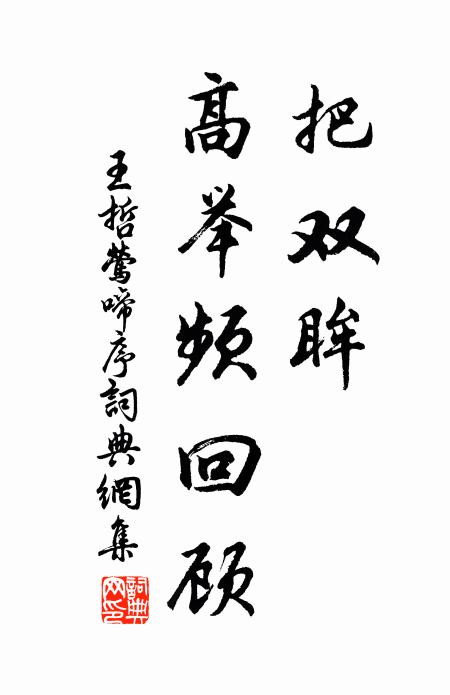 把双眸
高举频回顾
王哲莺啼序詞典網集
詞典
网印